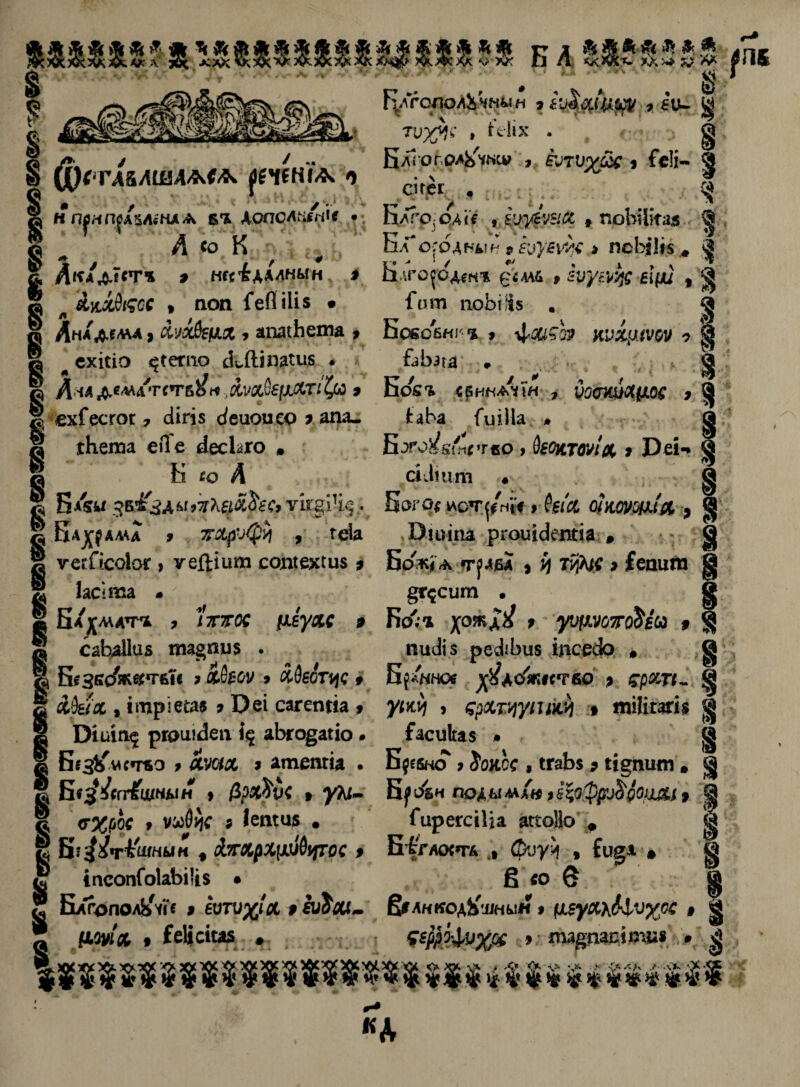 БА
рпв
Ѡставлѡѧемѧѧ реченїѧ
и приправлѧемаѧ въ дополненїе
А со К
Акадїстъ, несѣдалный,
ἀκάθιςος, non feſſilis.
Анаѳема, ἀνάθεμα, anathema,
exitio ęterno deſtinatus.
ἀναθεματίζω,
exfecror, diris deuoueo, ana-
thema eſſe declaro.
Б со А
Бабы ѕвѣзды, πλειάδες, virgilię.
Бахрама, παρυφὴ, tela
verſicolor, veſtium contextus,
lacima.
Бахматъ, ἵππος μέγας,
caballus magnus.
Безбожество, ἄθεον, ἀθεότης,
ἀθεΐα, impietas, Dei carentia,
Diuinę prouiden ię abrogatio.
Безумство, ἄνοια, amentia.
βραδὺς, γλί-
σχρος, νωθὴς, lentus.
Безутѣшный, ἀπαραμύθητος,
inconſolabilis.
Благополучїе, εὐτυχία, εὐδαι-
μονία, felicitas.
Благополучный, εὐδαίμων, εὐ-
τυχὴς, felix.
Благополучнѡ, εὐτυχῶς, feli-
citer.
Благородїе, εὐγένεια, nobilitas
Благородный, εὐγενὴς, nobilis.
Благороденъ есмь, εὐγενὴς εἰμὶ,
ſum nobilis.
Бобовникъ, κυάμινον,
fabata.
Бобъ свинячїй, ὑοσκύαμος,
faba ſuilla.
Богоубїйство, θεοκτονία, Dei-
cidium.
Бого смотренїе, θεία οἰκονομία,
Diuina prouidentia.
Божїѧ трава, ἡ τῆλις, fenum
gręcum.
Босъ хождꙋ, γυμνοποδέω,
nudis pedibus incedo.
Бранное художество, ςρατι-
γικὴ, ςρατηγικὴ, militaris
facultas.
Бревно, δοκὸς, trabs, tignum.
Брови подымаю,
ſupercilia attollo.
Бѣглость, φυγὴ, fuga.
В со Е
Великодушный, μεγαλόψυχος,
ςεῤῥόψυχος, magnanimus.
кд